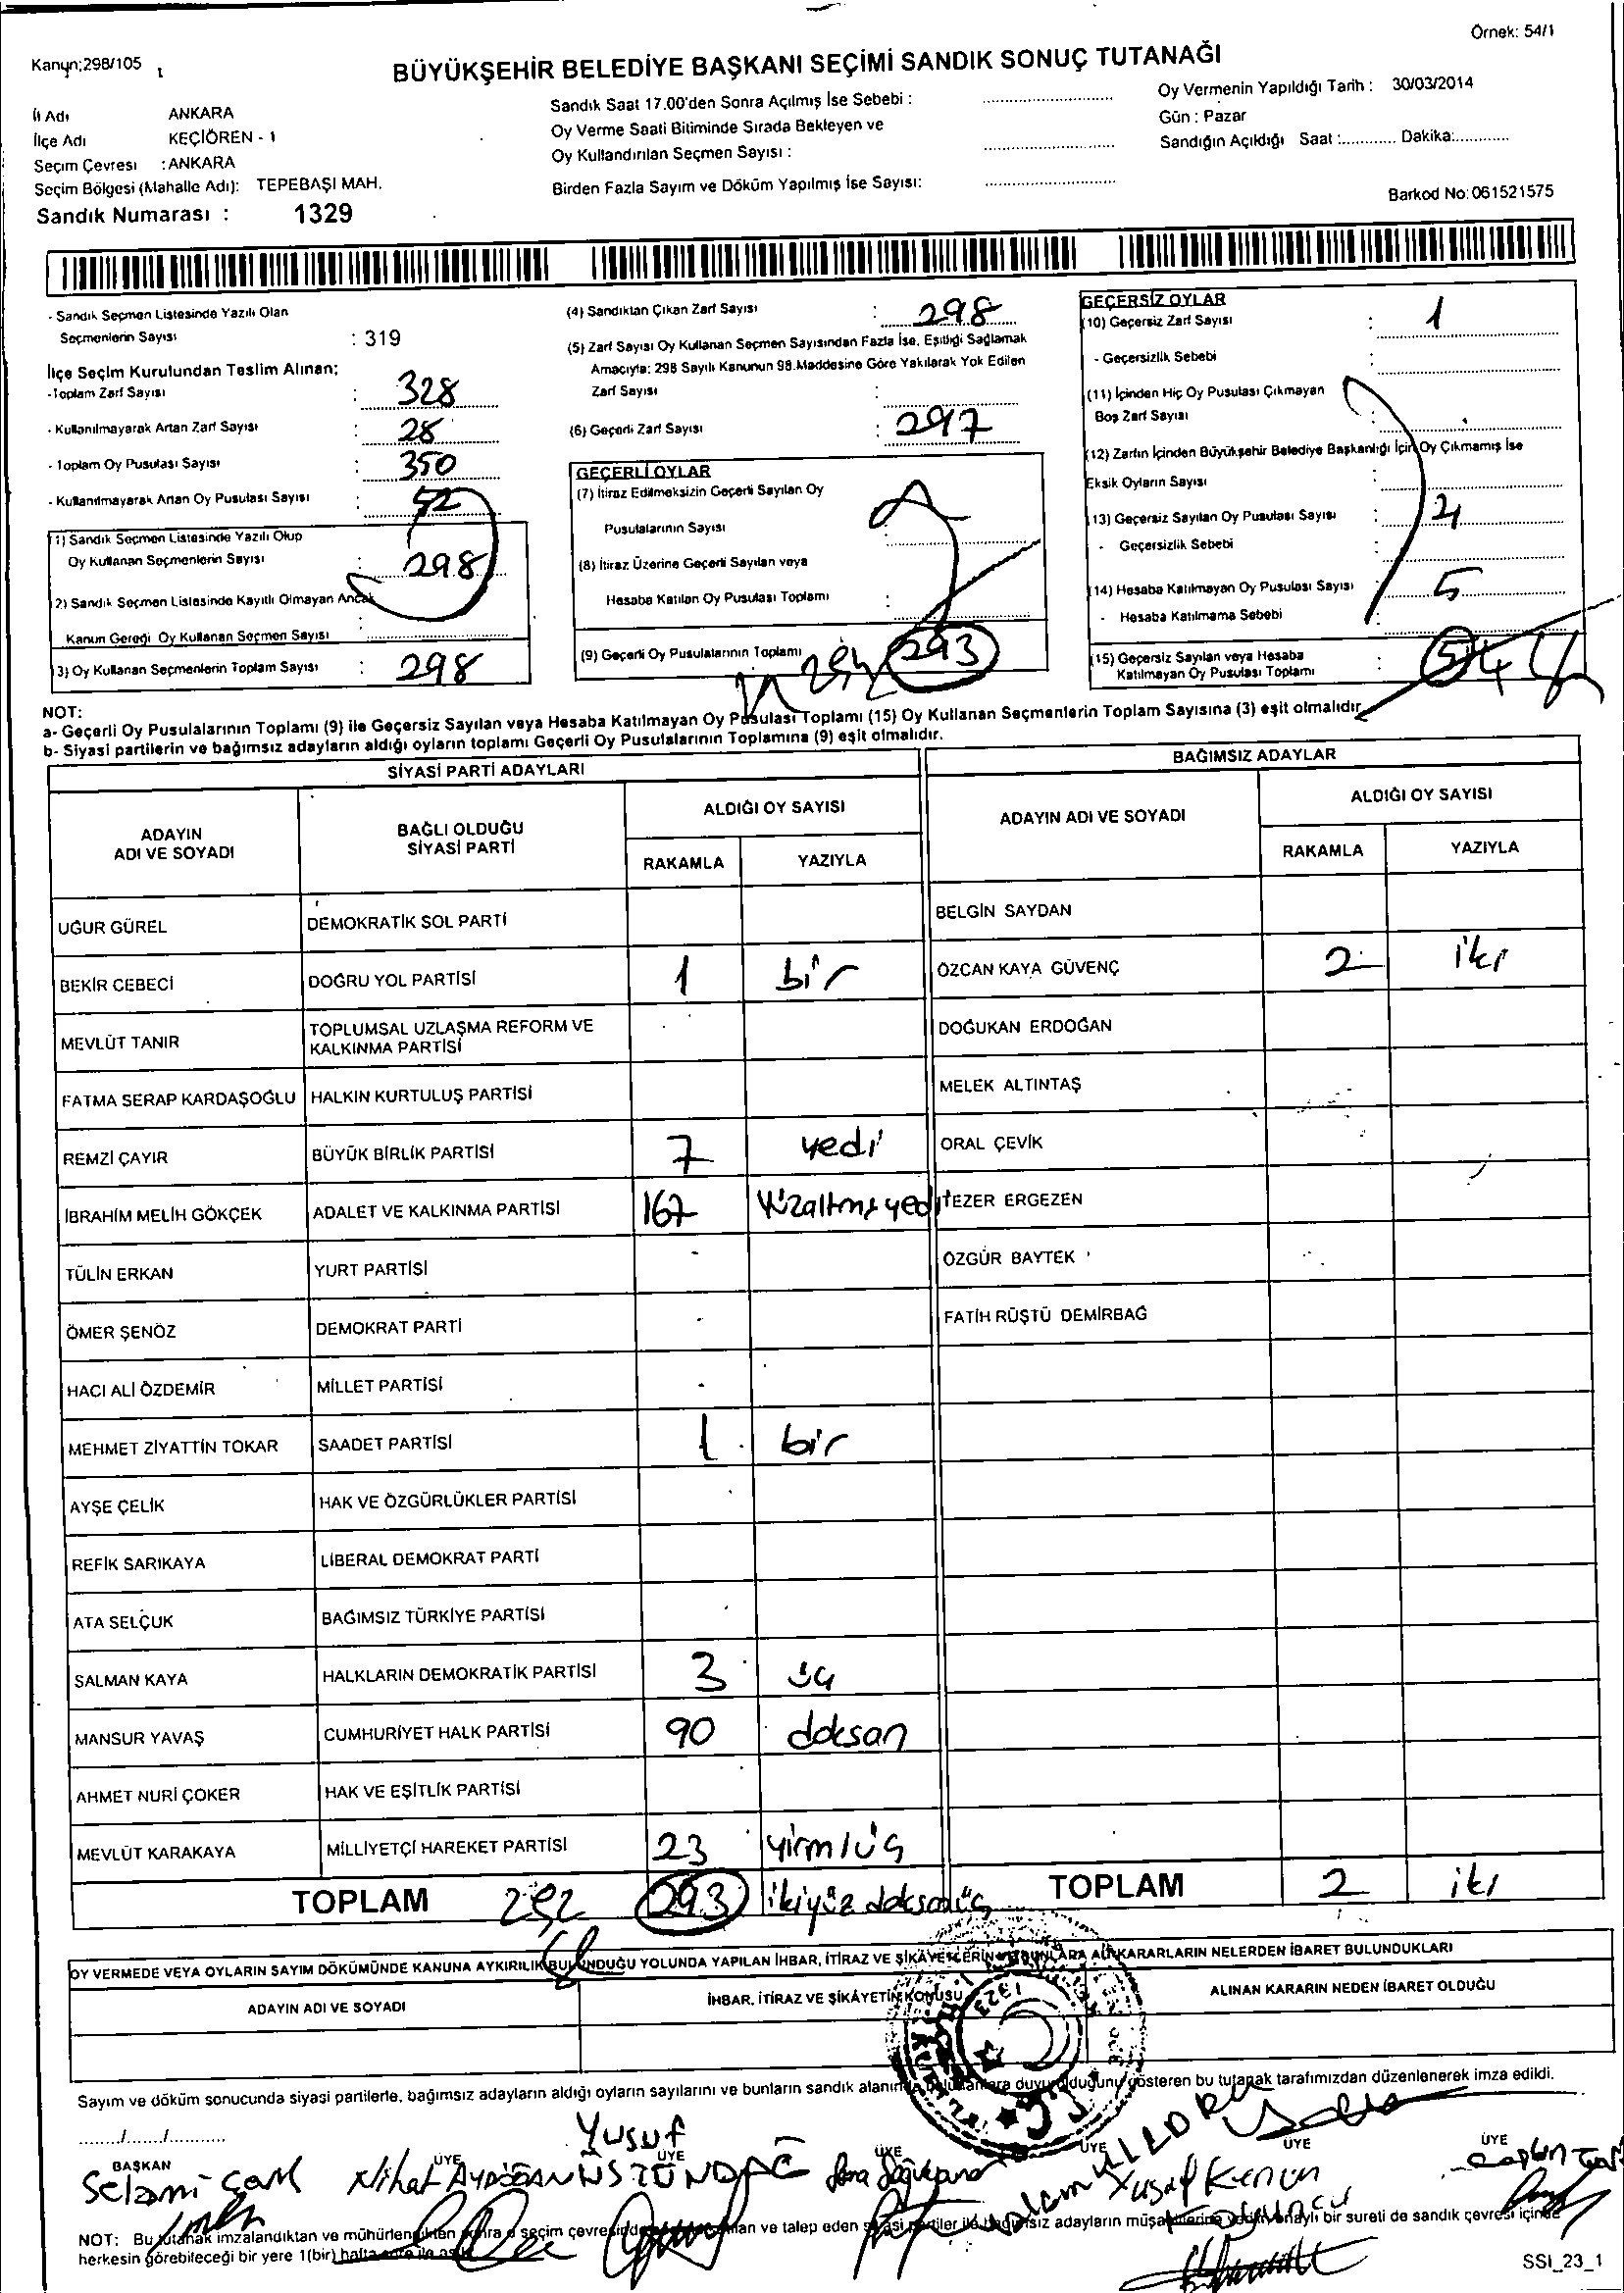 Örnek: 54/1
Kanun;298/105
BÜYÜKŞEHİR BELEDİYE BAŞKANI SEÇİMİ SANDIK SONUÇ TUTANAĞI
İl Adı ANKARA
İlçe Adı KEÇİÖREN - 1
Seçim Çevresi : ANKARA
Seçim Bölgesi (Mahalle Adı): TEPEBAŞI MAH.
Sandık Numarası : 1329
Sandık Saat 17.00'den Sonra Açılmış İse Sebebi :
Oy Verme Saati Bitiminde Sırada Bekleyen ve
Oy Kullandırılan Seçmen Sayısı :
Birden Fazla Sayım ve Döküm Yapılmış İse Sayısı:
Oy Vermenin Yapıldığı Tarih : 30/03/2014
Gün : Pazar
Sandığın Açıldığı Saat :............ Dakika:............
Barkod No: 061521575
- Sandık Seçmen Listesinde Yazılı Olan
Seçmenlerin Sayısı : 319
İlçe Seçim Kurulundan Teslim Alınan;
-Toplam Zarf Sayısı : 328
- Kullanılmayarak Artan Zarf Sayısı : 28
- Toplam Oy Pusulası Sayısı : 350
- Kullanılmayarak Artan Oy Pusulası Sayısı : 52
1) Sandık Seçmen Listesinde Yazılı Olup
Oy Kullanan Seçmenlerin Sayısı : 298
2) Sandık Seçmen Listesinde Kayıtlı Olmayan Ancak
Kanun Gereği Oy Kullanan Seçmen Sayısı :
3) Oy Kullanan Seçmenlerin Toplam Sayısı : 298
(4) Sandıktan Çıkan Zarf Sayısı : 298
(5) Zarf Sayısı Oy Kullanan Seçmen Sayısından Fazla İse, Eşitliği Sağlamak
Amacıyla; 298 Sayılı Kanunun 98.Maddesine Göre Yakılarak Yok Edilen
Zarf Sayısı :
(6) Geçerli Zarf Sayısı : 297
GEÇERLİ OYLAR
(7) İtiraz Edilmeksizin Geçerli Sayılan Oy
Pusulalarının Sayısı :
(8) İtiraz Üzerine Geçerli Sayılan veya
Hesaba Katılan Oy Pusulası Toplamı :
(9) Geçerli Oy Pusulalarının Toplamı 294 293
GEÇERSİZ OYLAR
(10) Geçersiz Zarf Sayısı : 1
- Geçersizlik Sebebi :
(11) İçinden Hiç Oy Pusulası Çıkmayan
Boş Zarf Sayısı :
(12) Zarfın İçinden Büyükşehir Belediye Başkanlığı İçin Oy Çıkmamış İse
Eksik Oyların Sayısı
13) Geçersiz Sayılan Oy Pusulası Sayısı : 4
- Geçersizlik Sebebi :
14) Hesaba Katılmayan Oy Pusulası Sayısı : 5
- Hesaba Katılmama Sebebi :
15) Geçersiz Sayılan veya Hesaba
Katılmayan Oy Pusulası Toplamı : 5 4
NOT:
a- Geçerli Oy Pusulalarının Toplamı (9) ile Geçersiz Sayılan veya Hesaba Katılmayan Oy Pusulası Toplamı (15) Oy Kullanan Seçmenlerin Toplam Sayısına (3) eşit olmalıdır.
b- Siyasi partilerin ve bağımsız adayların aldığı oyların toplamı Geçerli Oy Pusulalarının Toplamına (9) eşit olmalıdır.
SİYASİ PARTİ ADAYLARI
ADAYIN ADI VE SOYADI BAĞLI OLDUĞU SİYASİ PARTİ ALDIĞI OY SAYISI
RAKAMLA YAZIYLA
UĞUR GÜREL DEMOKRATİK SOL PARTİ
BEKİR CEBECİ DOĞRU YOL PARTİSİ 1 bir
MEVLÜT TANIR TOPLUMSAL UZLAŞMA REFORM VE KALKINMA PARTİSİ
FATMA SERAP KARDAŞOĞLU HALKIN KURTULUŞ PARTİSİ
REMZİ ÇAYIR BÜYÜK BİRLİK PARTİSİ 7 yedi
İBRAHİM MELİH GÖKÇEK ADALET VE KALKINMA PARTİSİ 167 yüzaltmışyedi
TÜLİN ERKAN YURT PARTİSİ -
ÖMER ŞENÖZ DEMOKRAT PARTİ -
HACI ALİ ÖZDEMİR MİLLET PARTİSİ -
MEHMET ZİYATTİN TOKAR SAADET PARTİSİ 1 bir
AYŞE ÇELİK HAK VE ÖZGÜRLÜKLER PARTİSİ
REFİK SARIKAYA LİBERAL DEMOKRAT PARTİ
ATA SELÇUK BAĞIMSIZ TÜRKİYE PARTİSİ
SALMAN KAYA HALKLARIN DEMOKRATİK PARTİSİ 3 üç
MANSUR YAVAŞ CUMHURİYET HALK PARTİSİ 90 doksan
AHMET NURİ ÇOKER HAK VE EŞİTLİK PARTİSİ
MEVLÜT KARAKAYA MİLLİYETÇİ HAREKET PARTİSİ 23 yirmiüç
TOPLAM 292 293 ikiyüz doksanüç
BAĞIMSIZ ADAYLAR
ADAYIN ADI VE SOYADI ALDIĞI OY SAYISI
RAKAMLA YAZIYLA
BELGİN SAYDAN
ÖZCAN KAYA GÜVENÇ 2 iki
DOĞUKAN ERDOĞAN
MELEK ALTINTAŞ
ORAL ÇEVİK
TEZER ERGEZEN
ÖZGÜR BAYTEK
FATİH RÜŞTÜ DEMİRBAĞ
TOPLAM 2 iki
OY VERMEDE VEYA OYLARIN SAYIM DÖKÜMÜNDE KANUNA AYKIRILIK BULUNDUĞU YOLUNDA YAPILAN İHBAR, İTİRAZ VE ŞİKÂYETLERİN KARARLARIN NELERDEN İBARET BULUNDUKLARI
ADAYIN ADI VE SOYADI İHBAR, İTİRAZ VE ŞİKÂYETİN KONUSU ALINAN KARARIN NEDEN İBARET OLDUĞU
Sayım ve döküm sonucunda siyasi partilerle, bağımsız adayların aldığı oyların sayılarını ve bunların sandık alanında duyurulduğunu gösteren bu tutanak tarafımızdan düzenlenerek imza edildi.
......../......../............
BAŞKAN ÜYE ÜYE ÜYE ÜYE ÜYE ÜYE
Selami Nihat AYDOĞAN Yusuf ÜSTÜNDAĞ Yusuf Kenan
NOT: Bu tutanak imzalandıktan ve mühürlendikten sonra o seçim çevresinde ve talep eden siyasi partiler ile bağımsız adayların müşahitlerine onaylı bir sureti de sandık çevresi içinde
herkesin görebileceği bir yere 1(bir) hafta süre ile asılır.
SSI_23_1